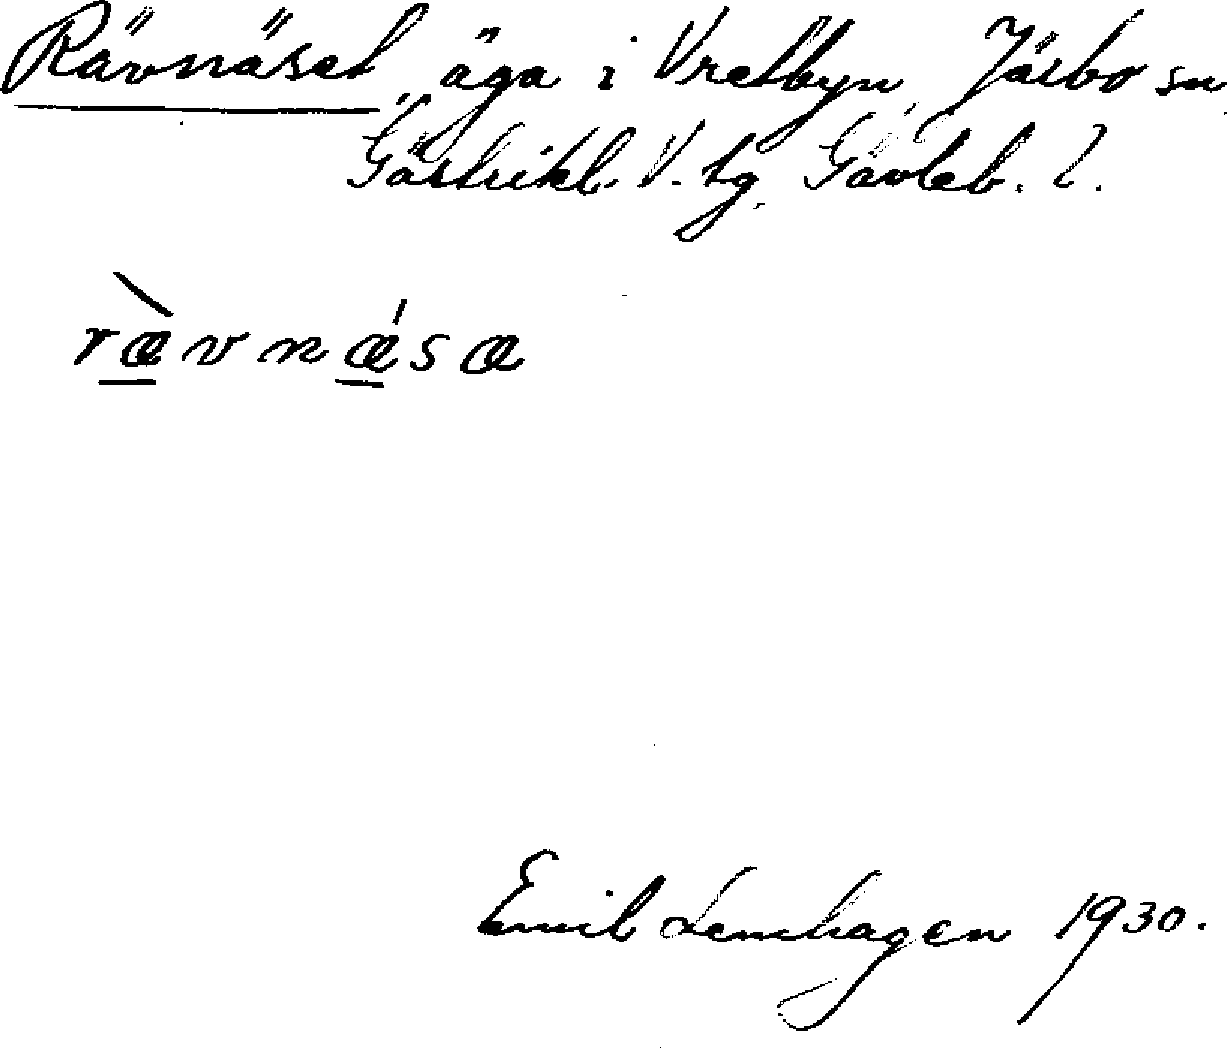 Rävnäset, äga i Vretbyn, Järbo sn
Gästrikl. V. tg. Gävleb. l.
rævnæsa
Emil Lenhagen 1930.